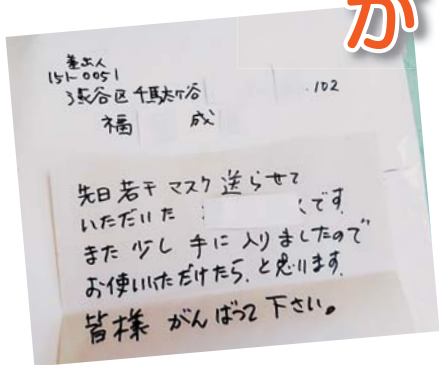 が
差出人
151-0051
渋谷区千駄ヶ谷 102
福 成
先日若干マスク送らせて
いただいた です
また少し手に入りましたので
お使いいただけたら、と思います。
皆様 がんばって下さい。